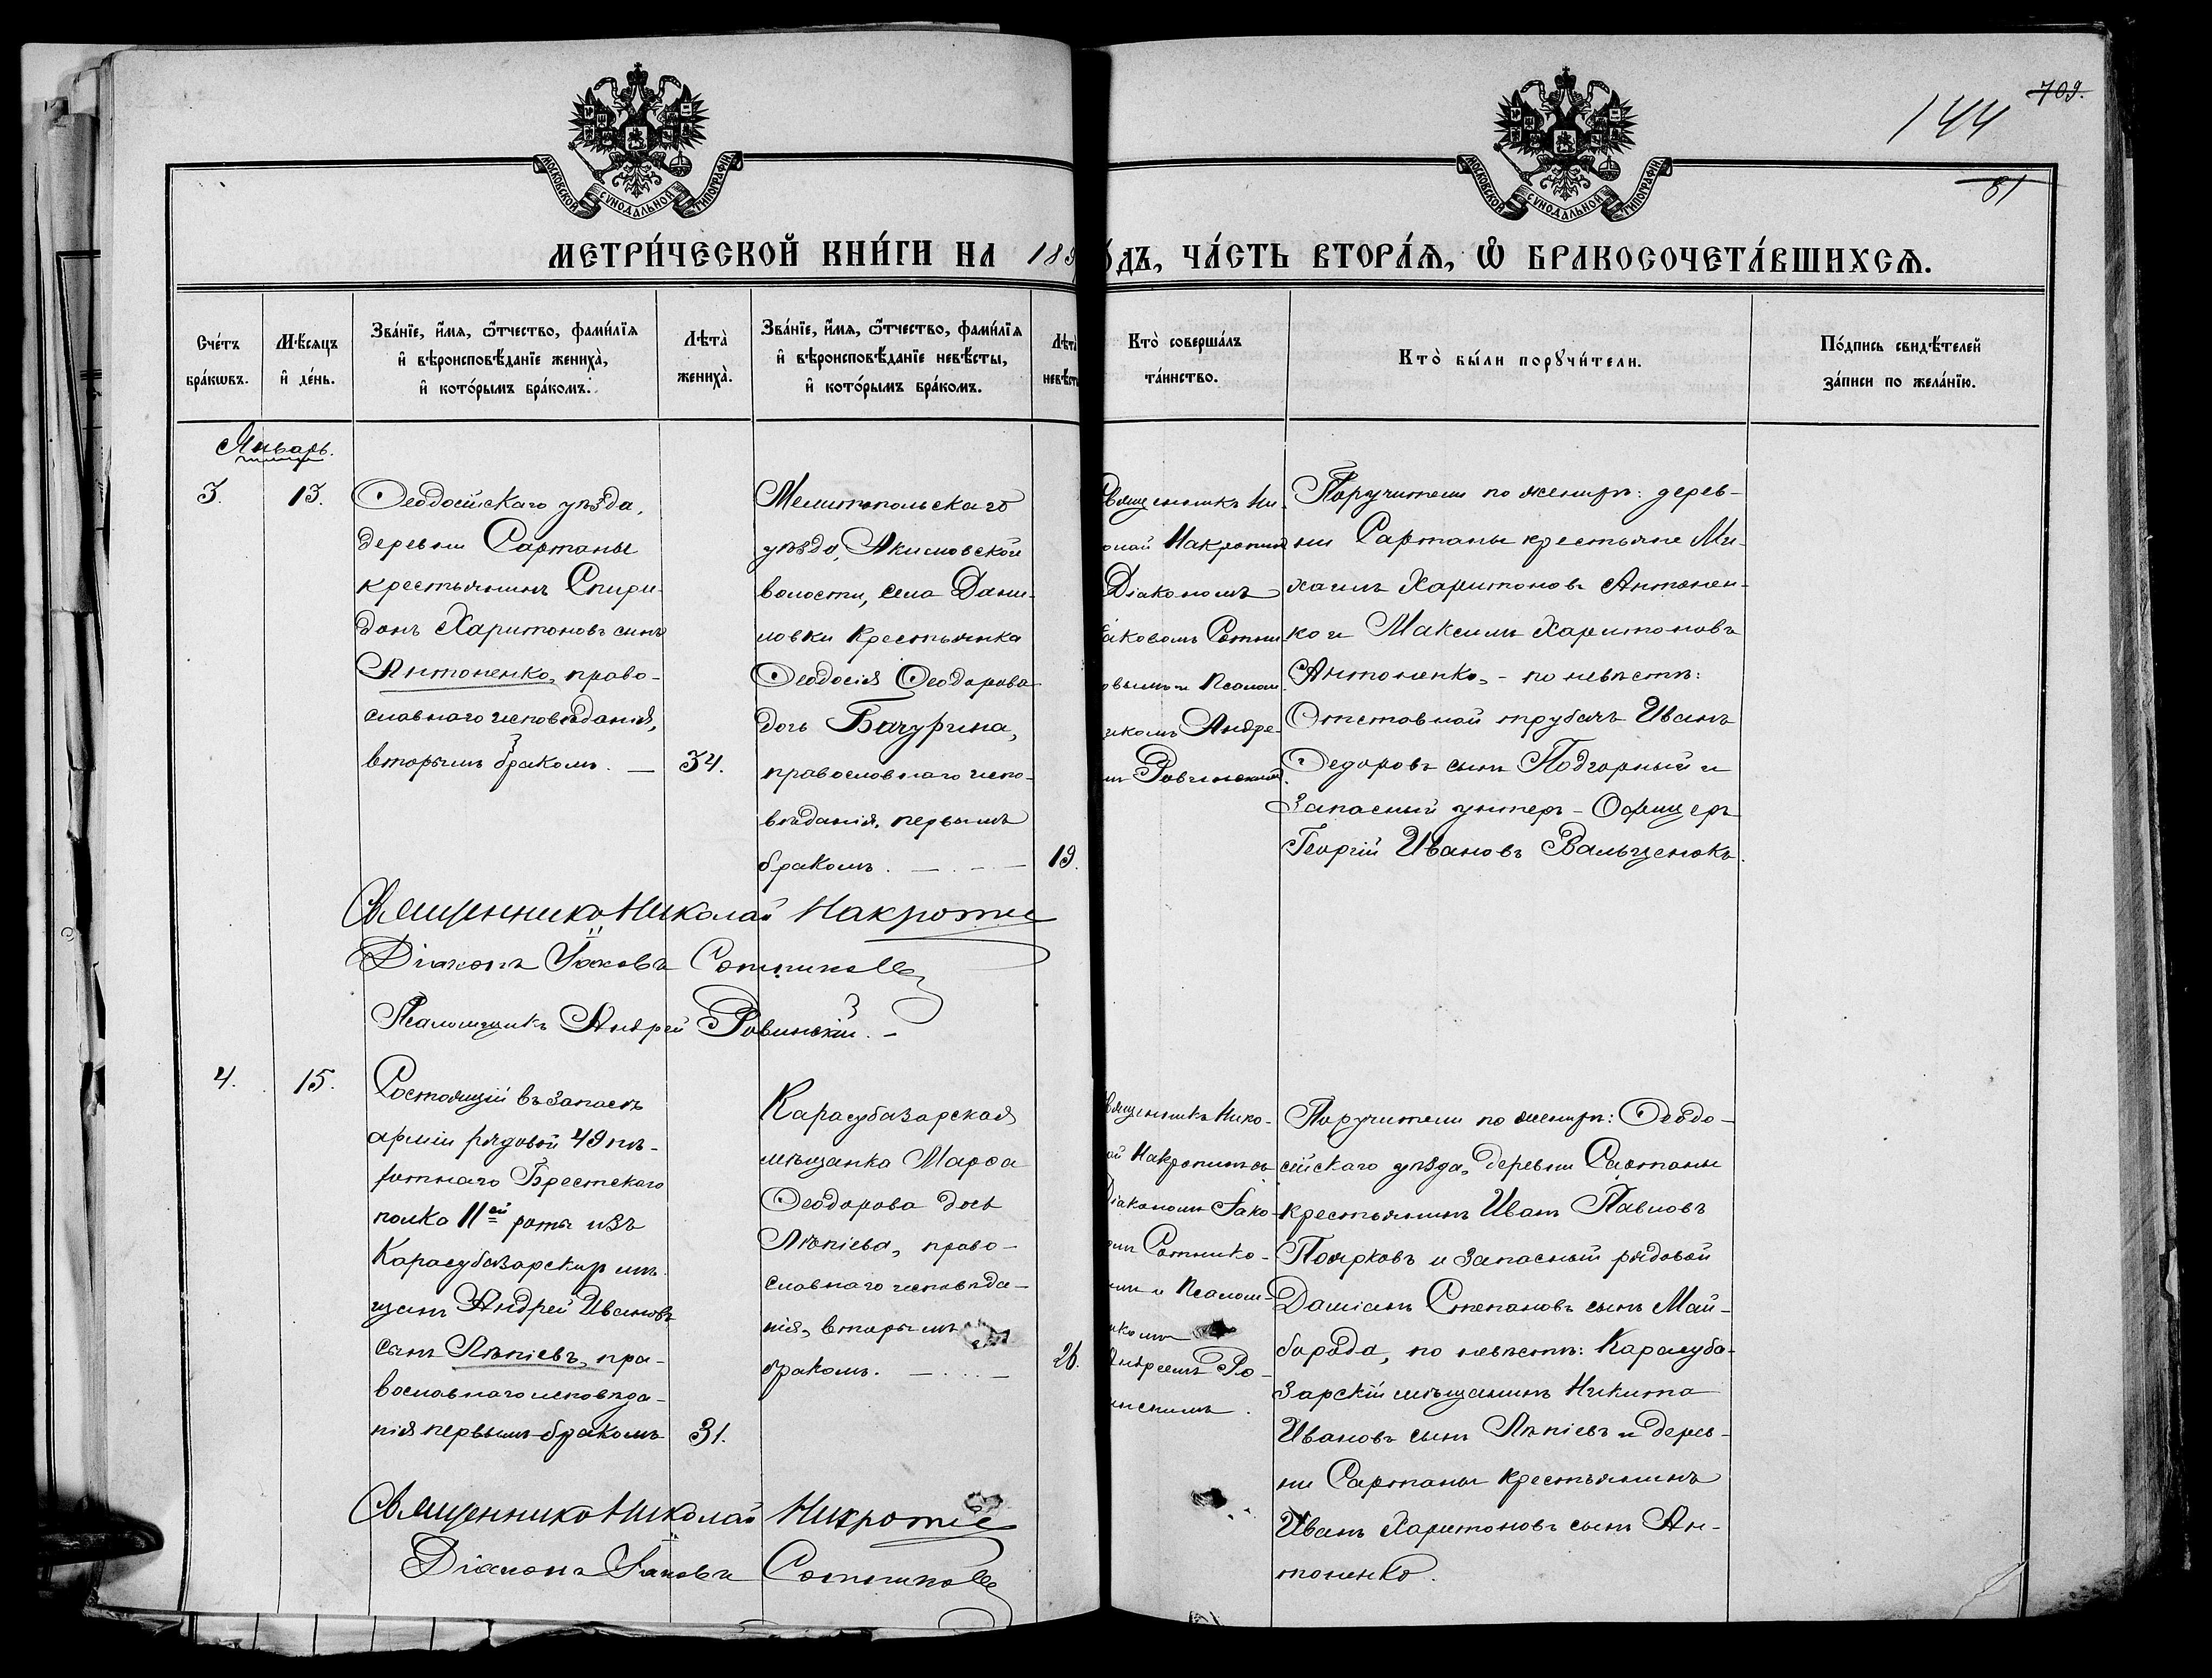 144
709.
81
МОСКОВСКОЙ СѴНОДАЛЬНОЙ ТИПОГРАФІИ
МОСКОВСКОЙ СѴНОДАЛЬНОЙ ТИПОГРАФІИ
МЕТРИ́ЧЕСКОЙ КНИ́ГИ НА 189
О́ДЪ, ЧА́СТЬ ВТОРА́Ѧ, Ѡ҆ БРАКОСОЧЕТА́ВШИХСѦ.
Сче́тъ
бра́кѡвъ.
Мѣ́сѧцъ
и҆ де́нь.
Зва́нїе, и҆́мѧ, ѻ҆́тчество, фами́лїѧ
и҆ вѣроисповѣ́данїе жениха̀,
и҆ кото́рымъ бра́комъ.
Лѣта̀
жениха̀.
Зва́нїе, и҆́мѧ, ѻ҆́тчество, фами́лїѧ
и҆ вѣроисповѣ́данїе невѣ́сты,
и҆ кото́рымъ бра́комъ.
Лѣта̀
невѣ́ст
Кто̀ соверша́лъ
та́инство.
Кто̀ бы́ли порꙋчи́тели.
По́дпись свидѣ́телей
за́писи по жела́нїю.
Январь.
3.
13.
Ѳеодосійскаго уѣзда,
деревни Сартаны
крестьянинъ Спири-
донъ Харитоновъ сынъ
Антоненко, право-
славнаго исповѣданія,
вторымъ бракомъ. —
34.
Мелитопольскаго
уѣзда, Акимовской
волости, села Дани-
ловки крестьянка
Ѳеодосія Ѳеодорова
дочь Бачурина,
православнаго испо-
вѣданія, первымъ
бракомъ. —
19.
Священникъ Ни-
олай Макропи
Діакономъ
Іаковомъ Сотни
овымъ и Псалом-
икомъ Андре-
мъ Ровинскимъ.
Поручители по женихѣ: дерев-
ни Сартаны крестьяне Ми-
хаилъ Харитоновъ Антонен-
ко и Максимъ Харитоновъ
Антоненко, - по невѣстѣ:
Отставной трубачъ Иванъ
Ѳедоровъ сынъ Подгорный и
Запасный унтеръ-Офицеръ
Георгій Ивановъ Вальценюкъ.
Священникъ Николай
Діаконъ Іаковъ Сотниковъ
Псаломщикъ Андрей Ровинскій. -
4.
15.
Состоящій въ запасѣ
арміи рядовой 49 пѣ-
хотнаго Брестскаго
полка 11ей роты изъ
Карасубазарскихъ мѣ-
щанъ Андрей Ивановъ
сынъ Лѣпіевъ, пра-
вославнаго исповѣда-
нія первымъ бракомъ
31.
Карасубазарская
мѣщанка Марѳа
Ѳеодорова дочь
Лѣпіева, право-
славнаго исповѣда-
нія, вторымъ
бракомъ. —
26.
Священникъ Нико-
Діакономъ Іако-
омъ Сотнико-
мъ и Псалом-
икомъ
Андреемъ Ро-
инскимъ.
Поручители по женихѣ: Ѳеодо-
сійскаго уѣзда, деревни Сартаны
крестьянинъ Иванъ Павловъ
Поярковъ и запасный рядовой
Даміанъ Степановъ сынъ Май-
борода, по невѣстѣ: Карасуба-
зарскій мѣщанинъ Никита
Ивановъ сынъ Лѣпіевъ и дерев-
ни Сартаны крестьянинъ
Иванъ Харитоновъ сынъ Ан-
тоненко.
Священникъ Николай
Діаконъ Іаковъ Сотниковъ